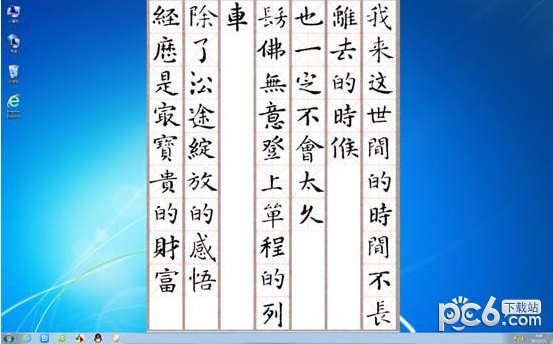 我来这世間的時間不長
離去的時候
也一定不會太久
髣佛無意登上單程的列
車
除了沿途綻放的感悟
經歷是最寶貴的財富
pc6下载站